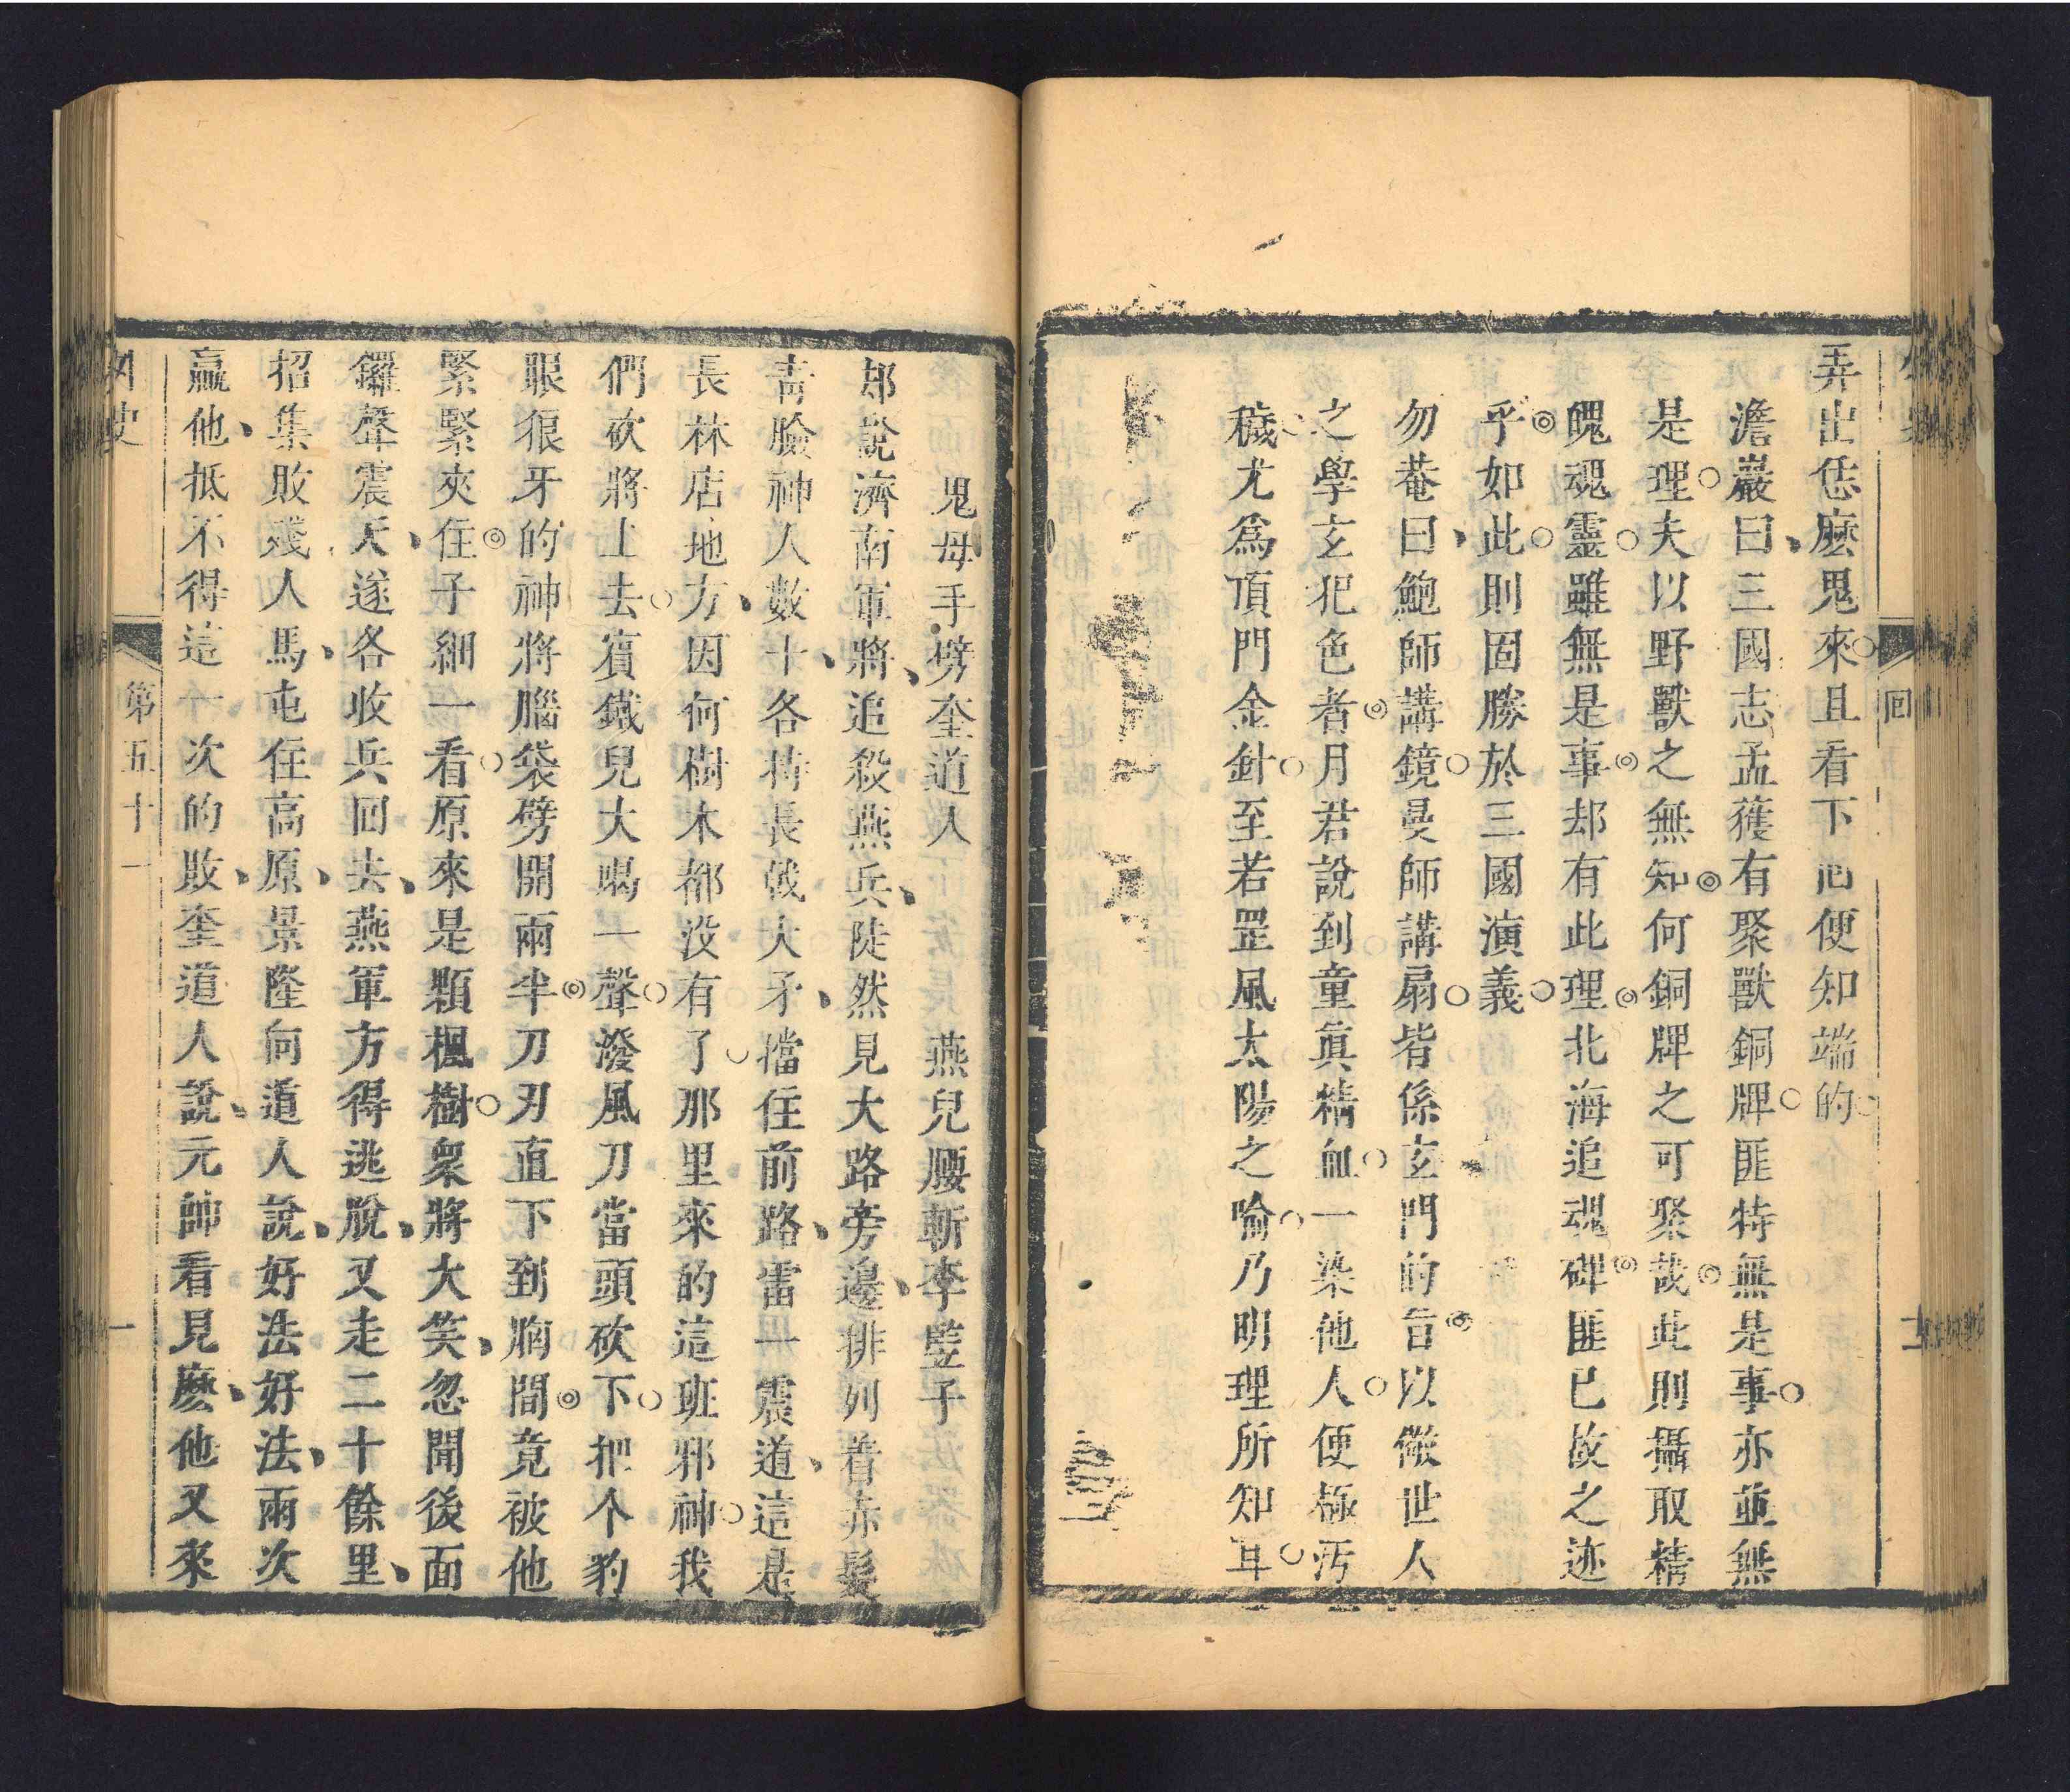 弄出恁麽鬼來且看下囘便知端的
澹巖曰三國志孟獲有聚獸銅牌匪特無是事亦並無
是理夫以野獸之無知何銅牌之可聚哉此則攝取精
魄魂靈雖無是事却有此理北海追魂碑匪已故之迹
乎如此則固勝於三國演義
勿菴曰鮑師講鏡曼師講扇皆係玄門的旨以儆世人
之學玄犯色者月君說到童眞精血一染他人便極汚
穢尤爲頂門金針至若罡風太陽之喻乃明理所知耳
鬼母手劈奎道人　燕兒腰斬李竪子
却說濟南軍將追殺燕兵陡然見大路旁邊排列着赤髮
青臉神人數十各持長戟大矛擋住前路雷一震道這是
長林店地方因何樹木都没有了那里來的這班邪神我
們砍將上去賓鐵兒大喝一聲潑風刀當頭砍下把个豹
眼狼牙的神將腦袋劈開兩半刀刃直下到胸間竟被他
緊緊夾住子細一看原來是顆楓樹衆將大笑忽聞後面
鑼聲震天遂各收兵回去燕軍方得逃脫又走二十餘里
招集敗殘人馬屯住高原景隆向道人說好法好法兩次
贏他抵不得這一次的敗奎道人說元帥看見麽他又來
史
第五十一
一